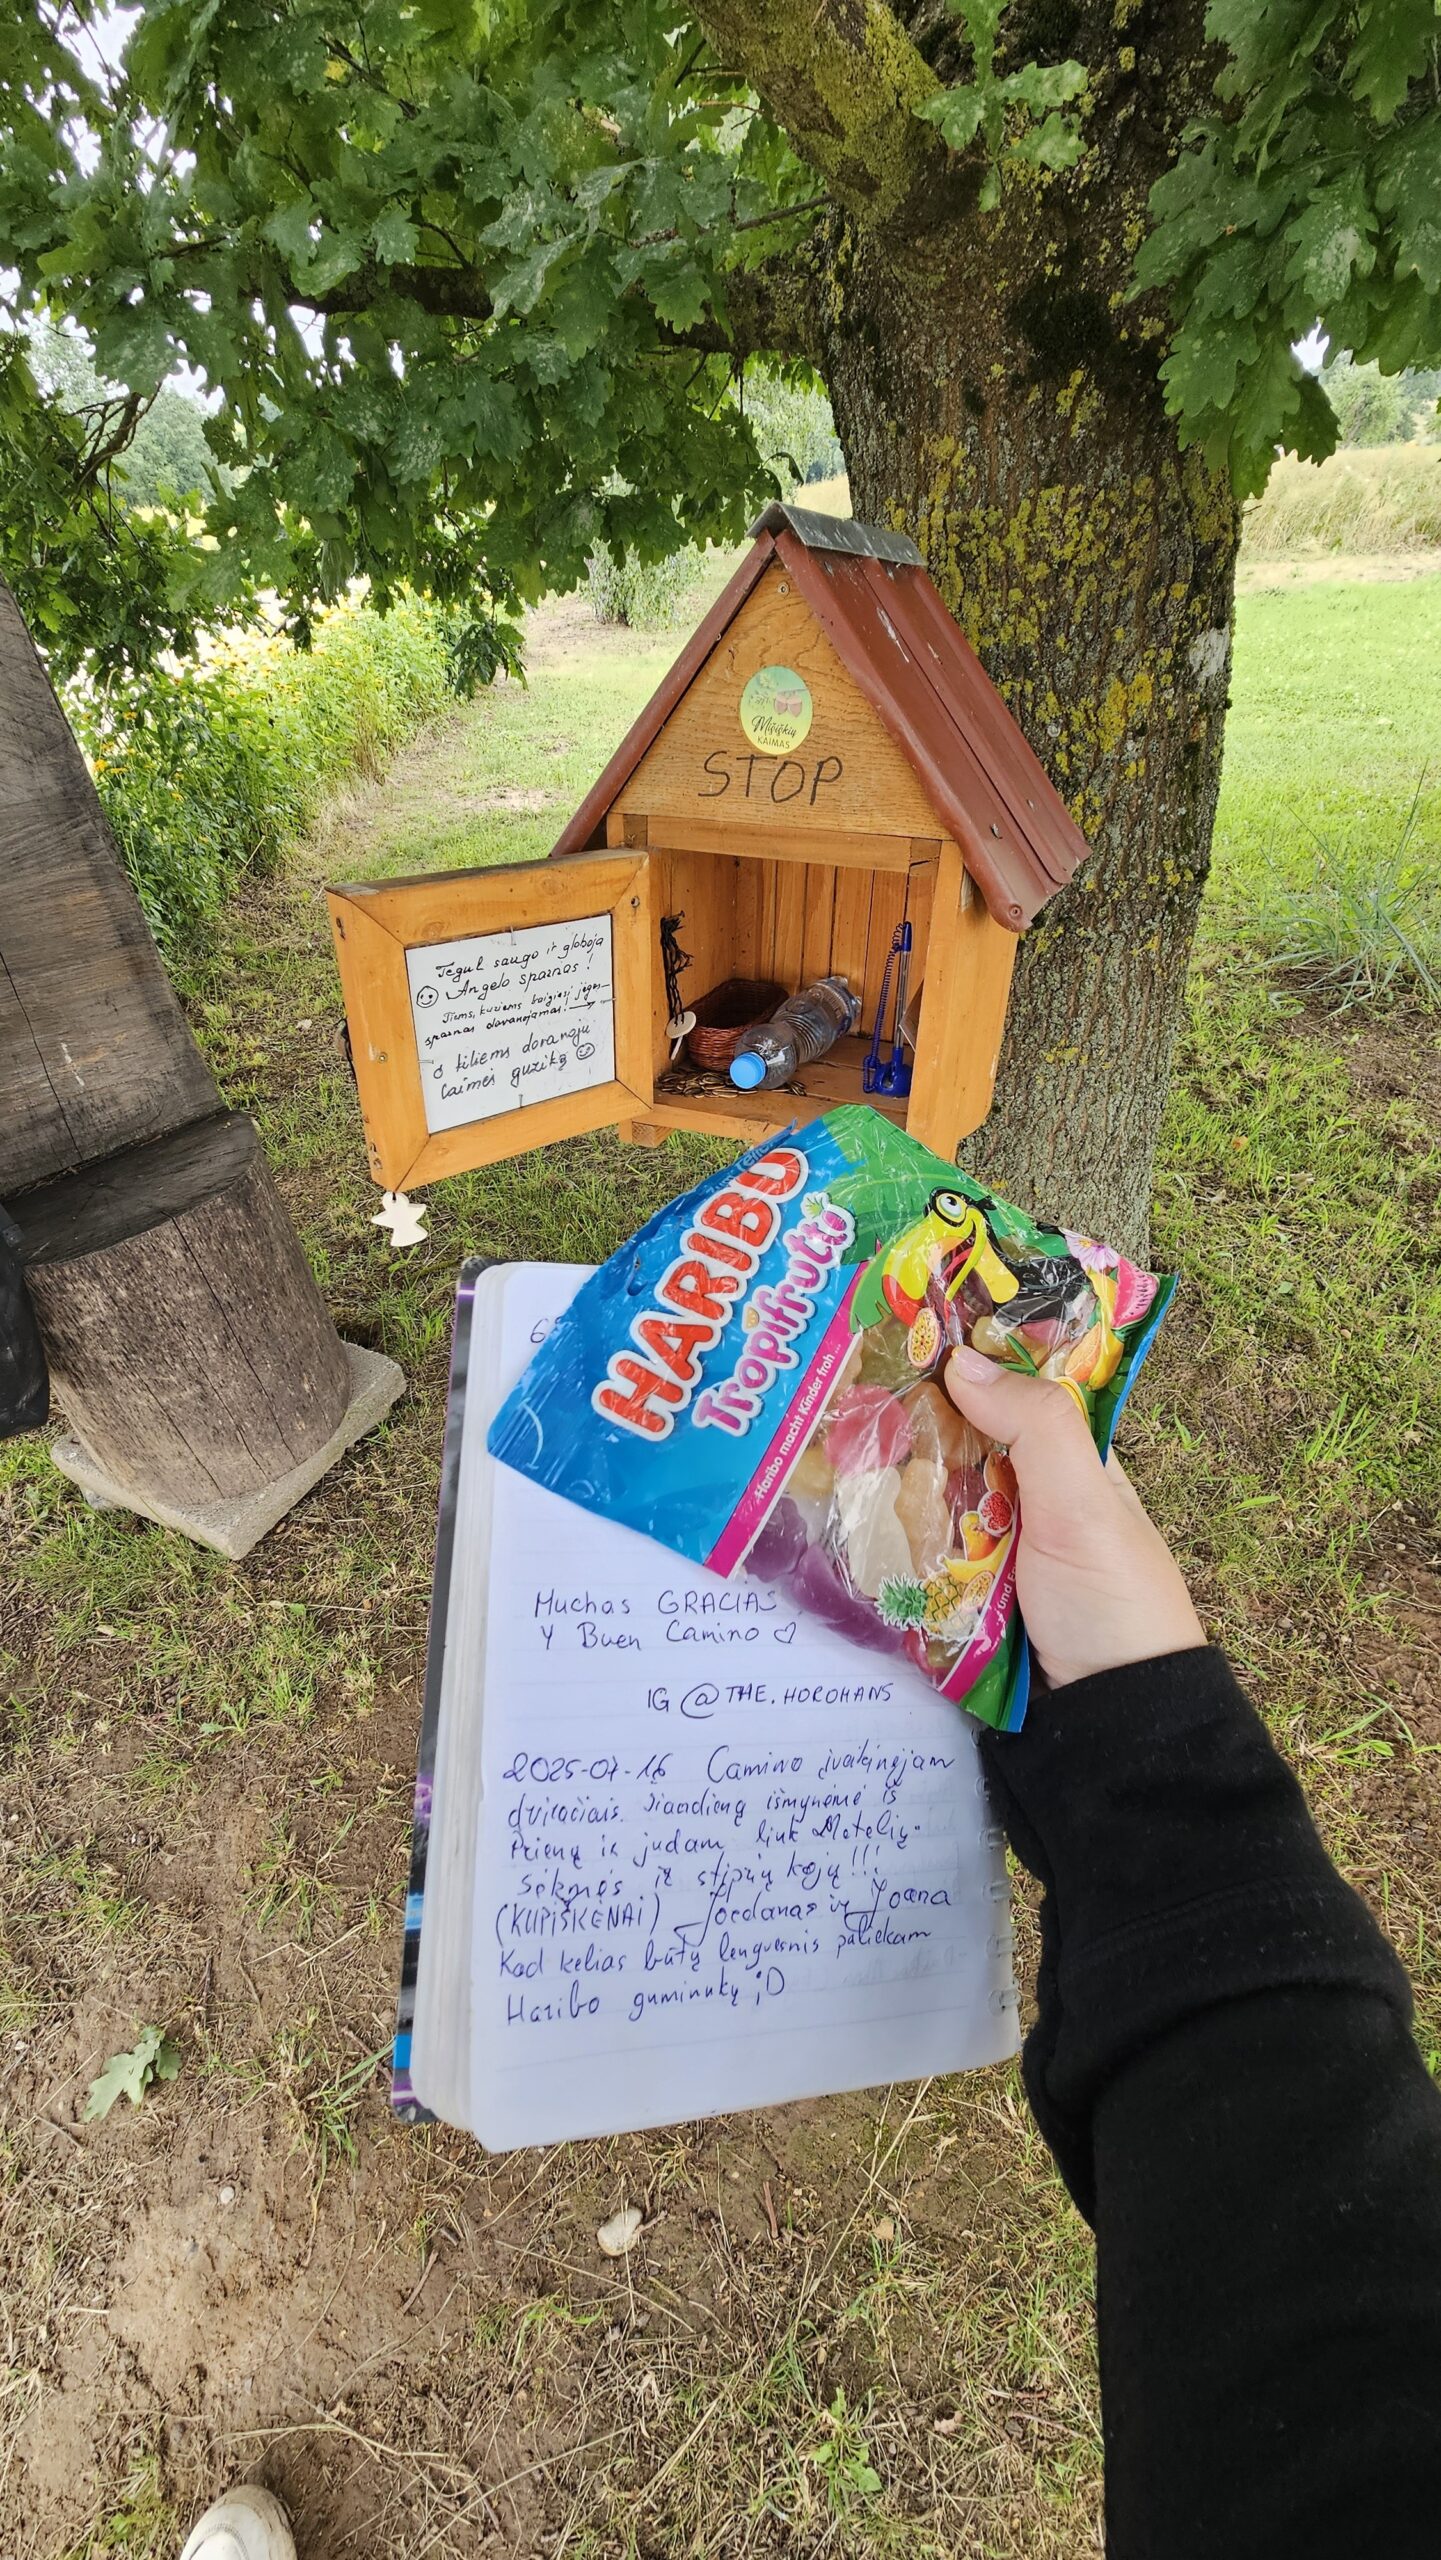 Mižiškių
KAIMAS
STOP
Tegul saugo ir globoja
Angelo sparnas!
Tiems, kuriems baigiasi jėgos–
sparnas dovanojamas!
o kitiems dovanoju
laimės guziką
HARIBO
Tropifrutti
Haribo macht Kinder froh ...
und Er
6
Muchas GRACIAS
Y Buen Camino ♡
IG @THE.HOROMANS
2025-07-16 Camino įveikinėjam
dviračiais. Šiandieną išmynėmė iš
Prienų ir judam link Metelių.
Sėkmės ir stiprių kojų!!!
(KUPIŠKĖNAI) Jordanas ir Joana
Kad kelias būtų lengvesnis paliekam
Haribo guminukų ;D